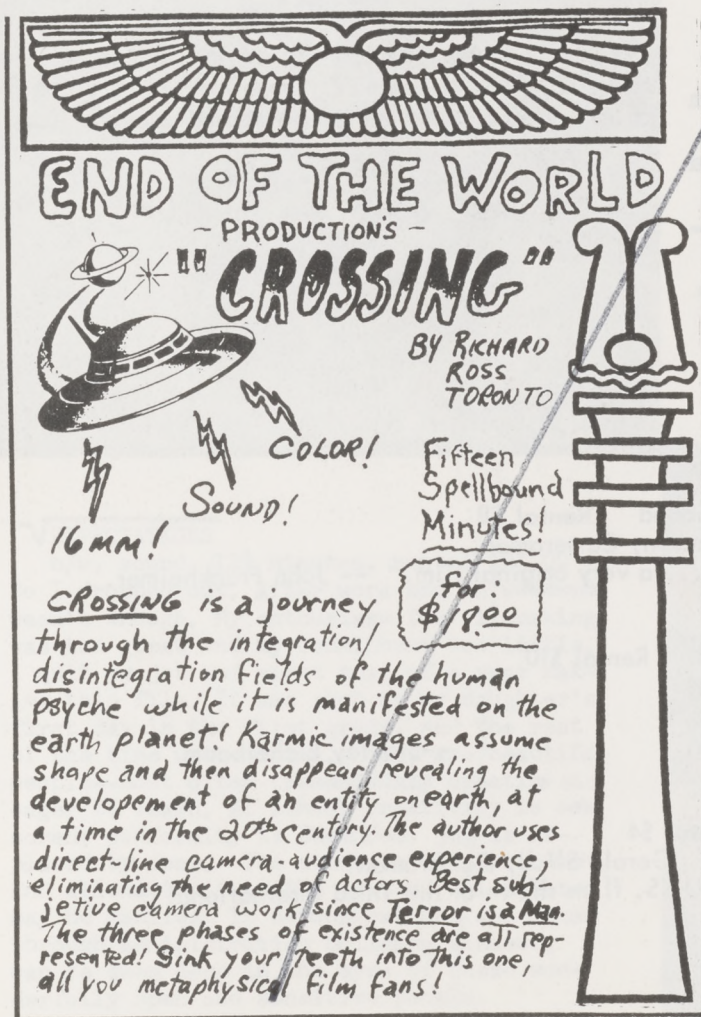 END OF THE WORLD
- PRODUCTION'S -
"CROSSING"
BY RICHARD
ROSS
TORONTO
COLOR!
SOUND!
16 MM!
Fifteen
Spellbound
Minutes!
for:
$18.00
CROSSING is a journey
through the integration/
disintegration fields of the human
psyche while it is manifested on the
earth planet! Karmic images assume
shape and then disappear revealing the
developement of an entity on earth, at
a time in the 20th century. The author uses
direct-line camera-audience experience,
eliminating the need of actors. Best sub-
jetive camera work since Terror is a Man.
The three phases of existence are all rep-
resented! Sink your teeth into this one,
all you metaphysical film fans!